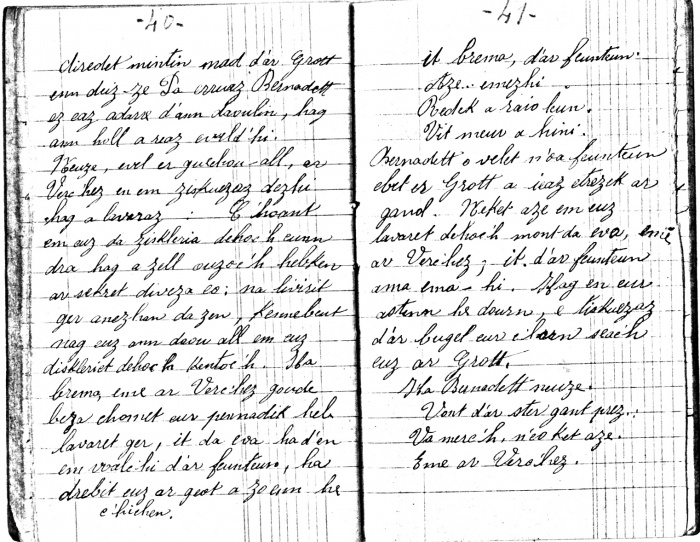 -40-
diredet mintin mad d'ar Grott
enn deiz-ze Da erruez Bernadett
ez eaz adarre d'ann daoulin, hag
ann holl a reaz evel d'hi.
Neuze, evel er guechou-all, ar
Verc'hez en em ziskuezaz dezhi
hag a lavaraz : C'hoant
em euz da ziskleria dehoc'h eunn
dra hag a zell ouzoc'h hebken
ar sekret diveza eo; na livirit
ger anezhan da zen, Kennebeut
nag euz ann daou all em euz
diskleriet dehoc'h kentoc'h. Ha
brema, eme ar Verc'hez goude
beza chomet eur pennadik heb
lavaret ger, it da eva ha d'en
em walc'hi d'ar feunteun, ha
drebit euz ar geot a zo enn he
c'hichen.
-41-
it brema, d'ar feunteun.
Aze.. emezhi
Redek a raio leun.
Vit meur a hini.
Bernadett o velet n'oa feunteun
ebet er Grott a ieaz etrezek ar
gaud. Neket aze em euz
lavaret dehoc'h mont da eva, emē
ar Verc'hez; it d'ar feunteun
ama ema-hi. Hag en eur
astenn he dourn, e tiskuezaz
d'ar bugel eur c'horn seac'h
euz ar Grott.
Ha Bernadett neuze.
Vont d'ar ster gant prez..
Va merc'h, n'eo ket aze.
Eme ar Verc'hez.